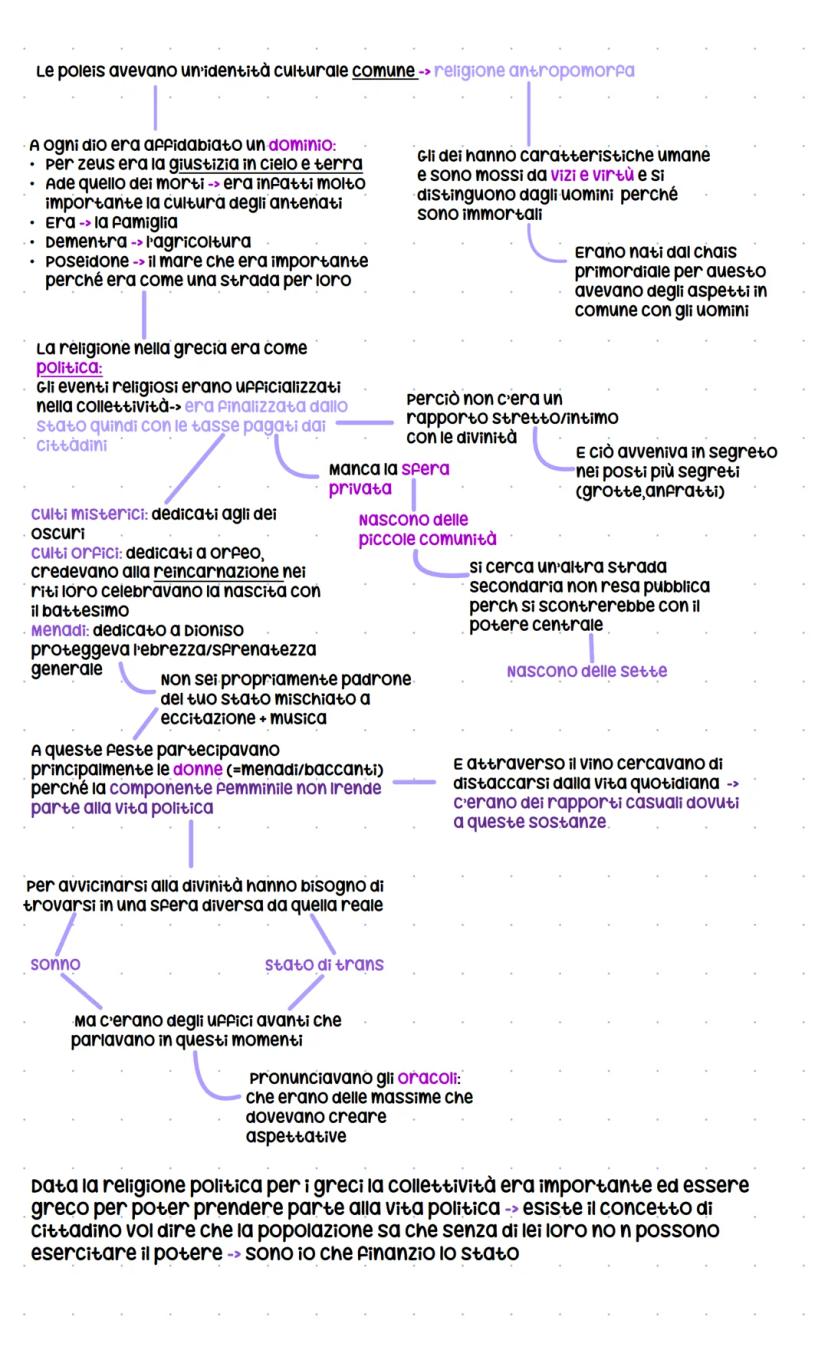 Le poleis avevano un'identità culturale comune -> religione antropomorfa
A ogni dio era affidabiato un dominio:
• Per zeus era la giustizia in cielo e terra
• Ade quello dei morti -> era infatti molto
importante la cultura degli antenati
• Era -> la famiglia
• Dementra -> l'agricoltura
• Poseidone -> il mare che era importante
perché era come una strada per loro
Gli dei hanno caratteristiche umane
e sono mossi da vizi e virtù e si
distinguono dagli uomini perché
sono immortali
Erano nati dal chais
primordiale per auesto
avevano degli aspetti in
comune con gli uomini
La religione nella grecia era come
politica:
Gli eventi religiosi erano ufficializzati
nella collettività-> era finalizzata dallo
stato quindi con le tasse pagati dai
cittàdini
Perciò non c'era un
rapporto stretto/intimo
con le divinità
E ciò avveniva in segreto
nei posti più segreti
(grotte,anfratti)
Manca la sfera
privata
Nascono delle
piccole comunità
si cerca un'altra strada
secondaria non resa pubblica
perch si scontrerebbe con il
potere centrale
Nascono delle sette
Culti misterici: dedicati agli dei
oscuri
Culti orfici: dedicati a orfeo,
credevano alla reincarnazione nei
riti loro celebravano la nascita con
il battesimo
Menadi: dedicato a Dioniso
proteggeva l'ebrezza/sfrenatezza
generale
Non sei propriamente padrone
del tuo stato mischiato a
eccitazione + musica
A queste feste partecipavano
principalmente le donne (=menadi/baccanti)
perché la componente femminile non lrende
parte alla vita politica
E attraverso il vino cercavano di
distaccarsi dalla vita quotidiana ->
c'erano dei rapporti casuali dovuti
a queste sostanze
Per avvicinarsi alla divinità hanno bisogno di
trovarsi in una sfera diversa da quella reale
sonno
Stato di trans
Ma c'erano degli uffici avanti che
parlavano in questi momenti
Pronunciavano gli oracoli:
che erano delle massime che
dovevano creare
aspettative
Data la religione politica per i greci la collettività era importante ed essere
greco per poter prendere parte alla vita politica -> esiste il concetto di
cittadino vol dire che la popolazione sa che senza di lei loro no n possono
esercitare il potere -> sono io che finanzio lo stato